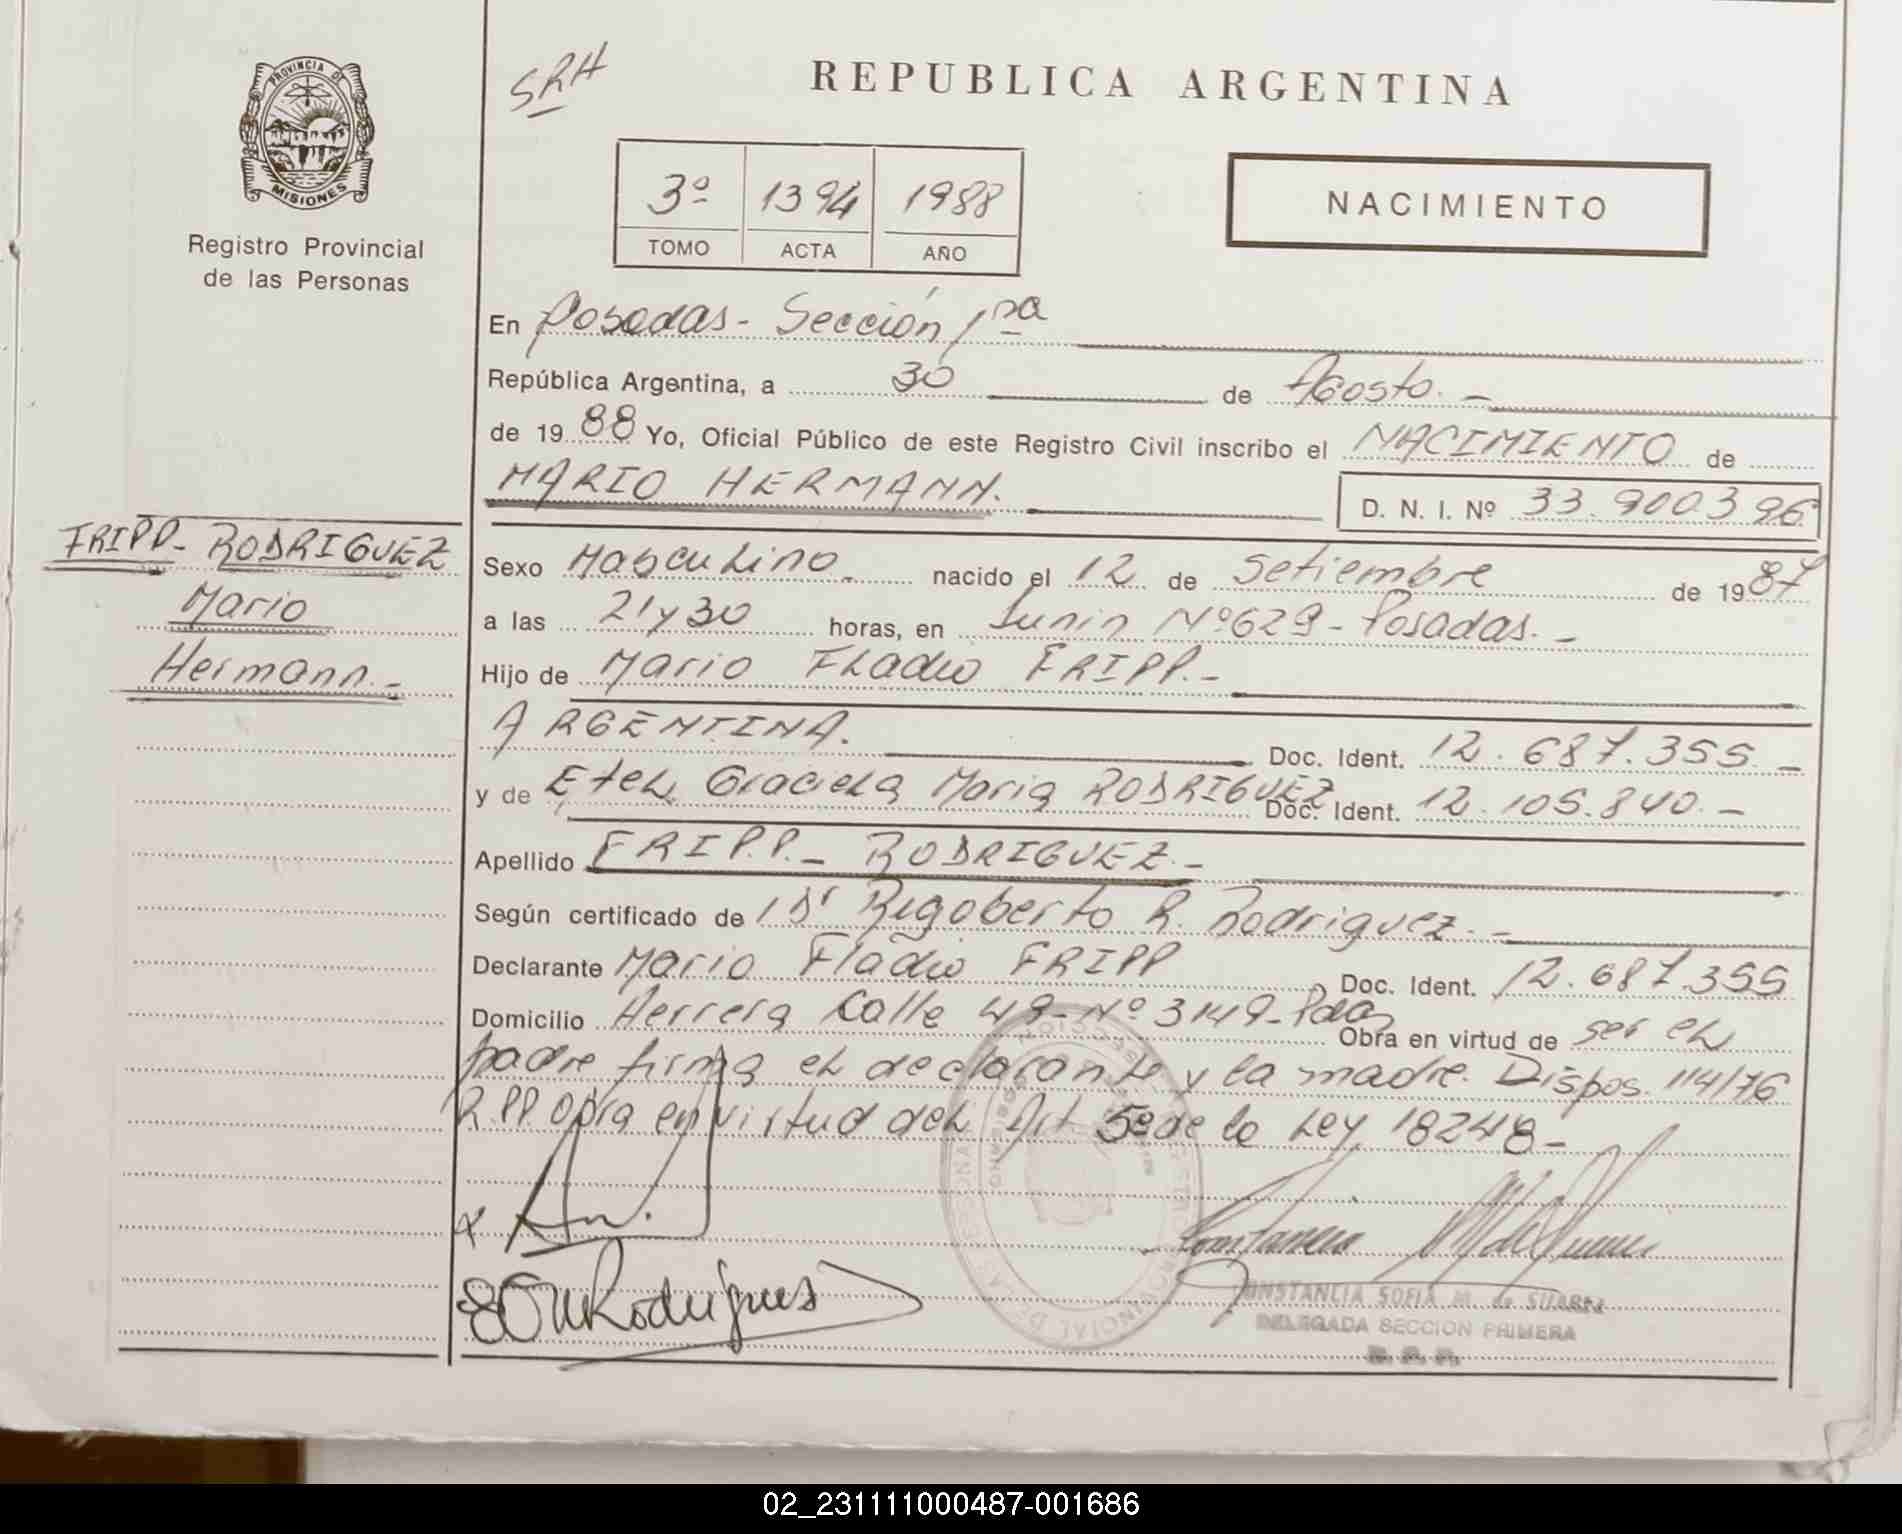 PROVINCIA DE
MISIONES
Registro Provincial
de las Personas
SRH
REPUBLICA ARGENTINA
3º 1394 1988
TOMO ACTA AÑO
NACIMIENTO
En Posadas - Sección 1ra
República Argentina, a 30 de Agosto. -
de 1988 Yo, Oficial Público de este Registro Civil inscribo el NACIMIENTO de
MARIO HERMANN.
D. N. I. Nº 33.900396
FRIPP - RODRIGUEZ
Mario
Hermann. -
Sexo Masculino. nacido el 12 de Setiembre de 1987
a las 21 y 30 horas, en Junin Nº 629 - Posadas. -
Hijo de Mario Eladio FRIPP. -
ARGENTINA. Doc. Ident. 12.687.355 -
y de Etel Graciela Maria RODRIGUEZ Doc. Ident. 12.105.840. -
Apellido FRIPP. - RODRIGUEZ. -
Según certificado de 1 Dr Rigoberto R. Rodriguez. -
Declarante Mario Eladio FRIPP Doc. Ident. 12.687.355
Domicilio Herrera Calle 49 - Nº 3149 - Pdas Obra en virtud de ser el
padre firma el declarante y la madre. Dispos. 114/76
R.PP. Obra en virtud del Art 5º de la Ley. 18248 -
CONSTANCIA SOFIA M. de SUAREZ
DELEGADA SECCION PRIMERA
02_231111000487-001686